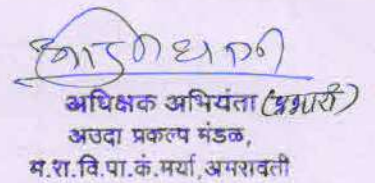 अधिक्षक अभियंता (प्रभारी)
अउदा प्रकल्प मंडळ,
म.रा.वि.पा.कं.मर्या,अमरावती